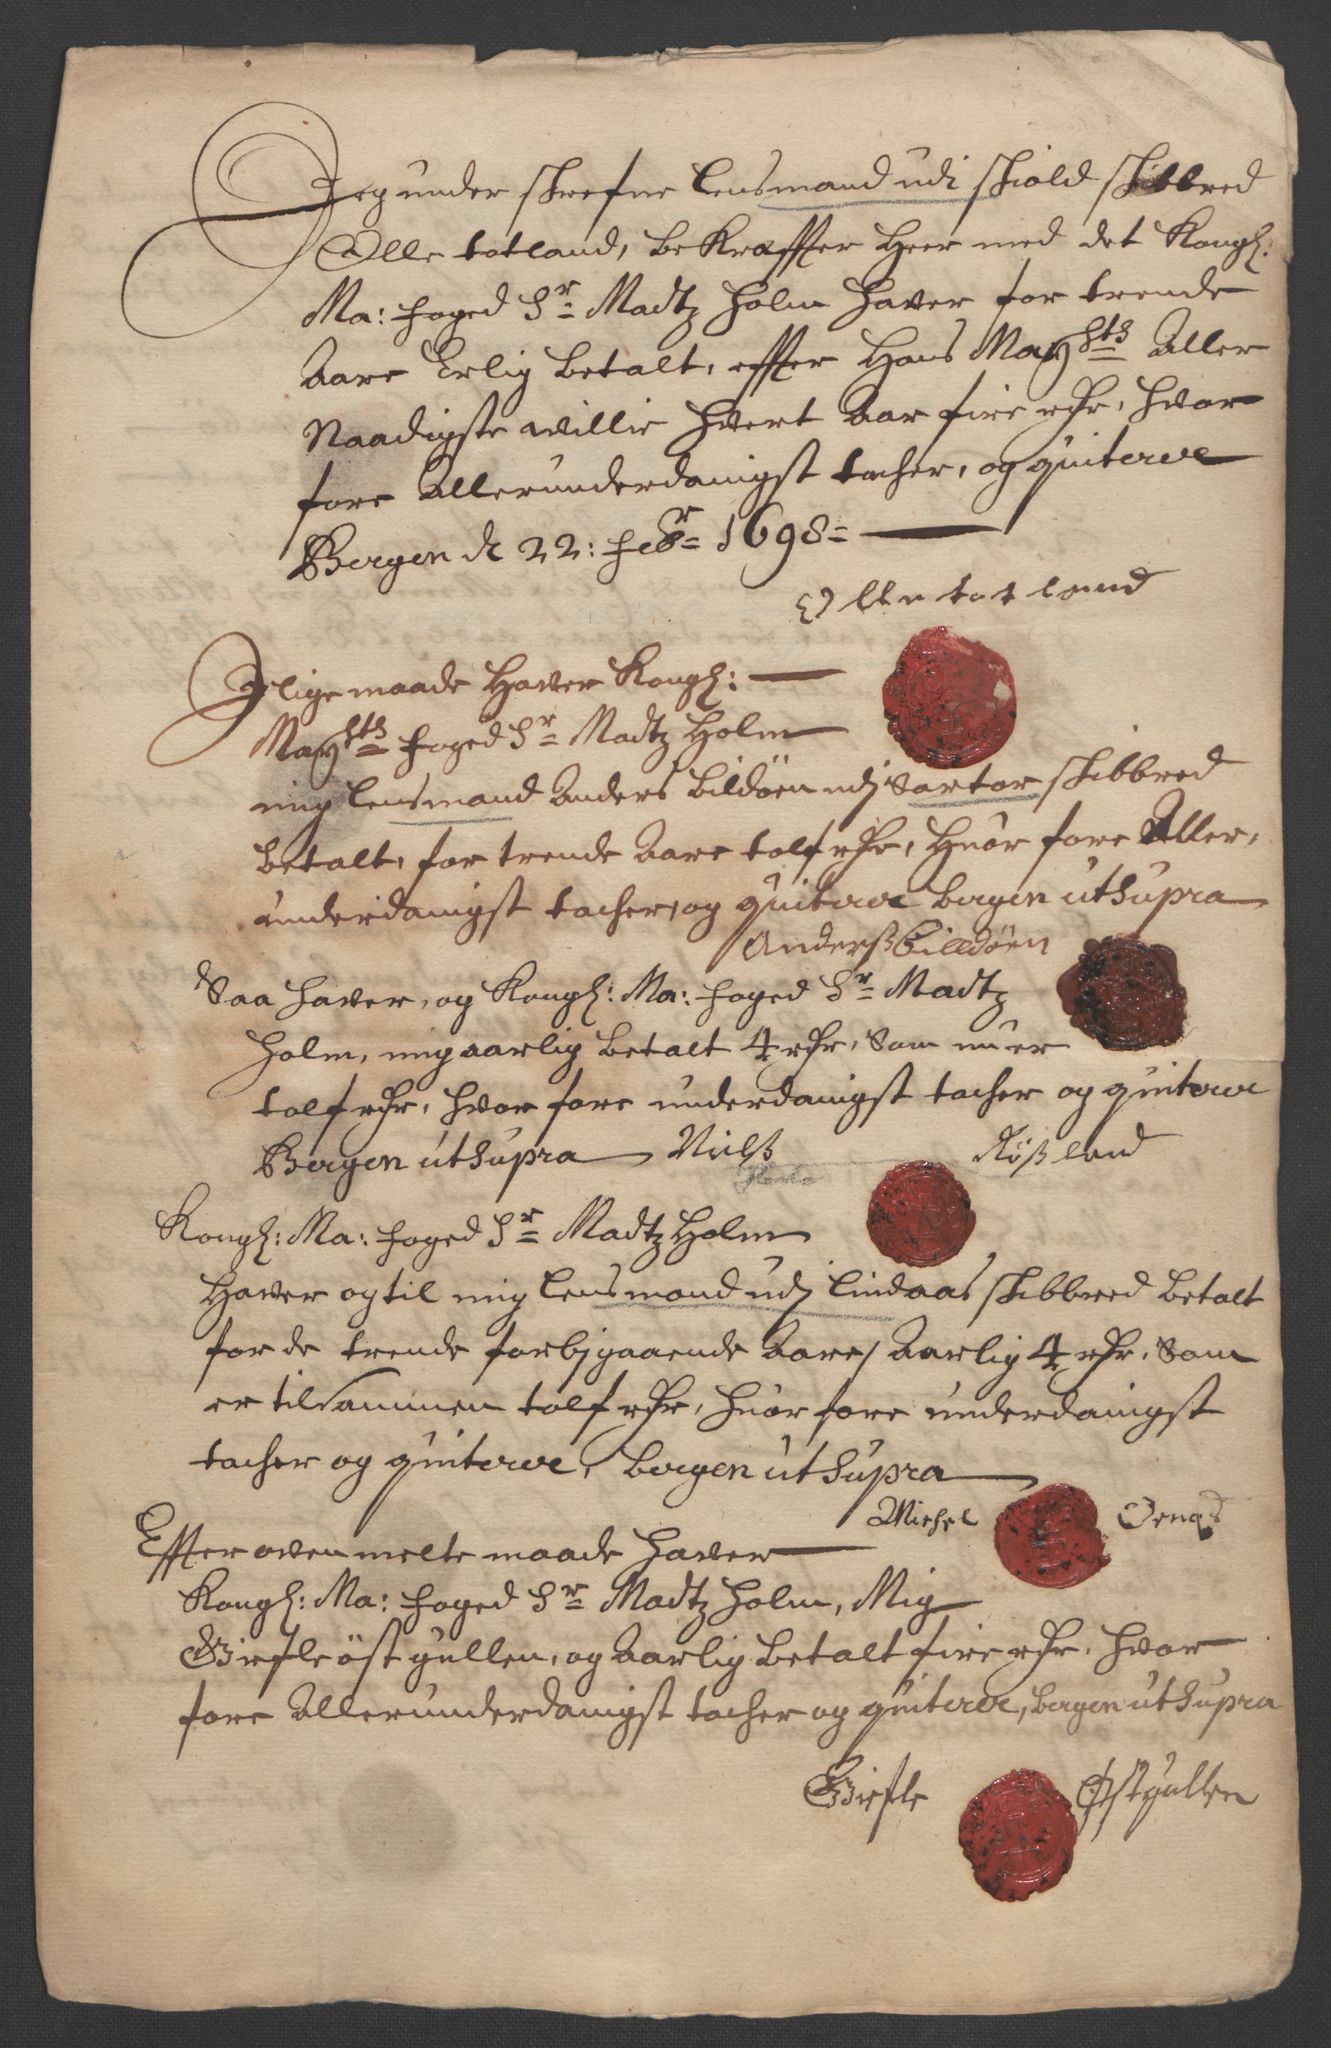 Jeg under skrefne lensmand udi skiold skibbred
Olle totland, bekreffter heer med det Kongl:
Ma: foged Sr Madtz Holm hafver for trende
Aare Erlig betalt, effter Hans Mayhts Aller
Naadigste willie hvert Aar fire rdr, hvor
fore Allerunderdanigst tacher, og quiterer
Bergen d 22: febr 1698=
Olle totland
J lige maade hafver Kongl:
Mayhts foged Sr Madtz Holm
mig lensmand Anders Bildöen udj Sartor skibbred
betalt, for trende Aare tolf rdr, huor fore Aller,
underdanigst tacher, og quiterer bergen ut Supra
Anderß billdöen
Saa hafver, og Kongl: Ma: foged Sr Madtz
Holm, mig aarlig betalt 4 rdr, Som nu er
tolf rdr, hvor fore underdanigst tacher og quiterer
Bergen ut Supra Nielß Röß land
Herlø
Kongl: Ma: foged Sr Madtz Holm
Hafver og til mig lensmand udj lindaas skibbred betalt
for de trende forbjgaaende Aare, Aarlig 4 rdr, Som
er tilsammen tolf rdr, huor fore underdanigst
tacher og quiterer, bergen ut Supra
Michel Ornes
Effter ovenmelte maade hafver
Kongl: Ma: foged Sr Madtz Holm, Mig
Giefle öst gullen, og Aarlig betalt fire rdr, hvor
fore Allerunderdanigst tacher og quiterer, bergen ut Supra
Giefle Østgullen